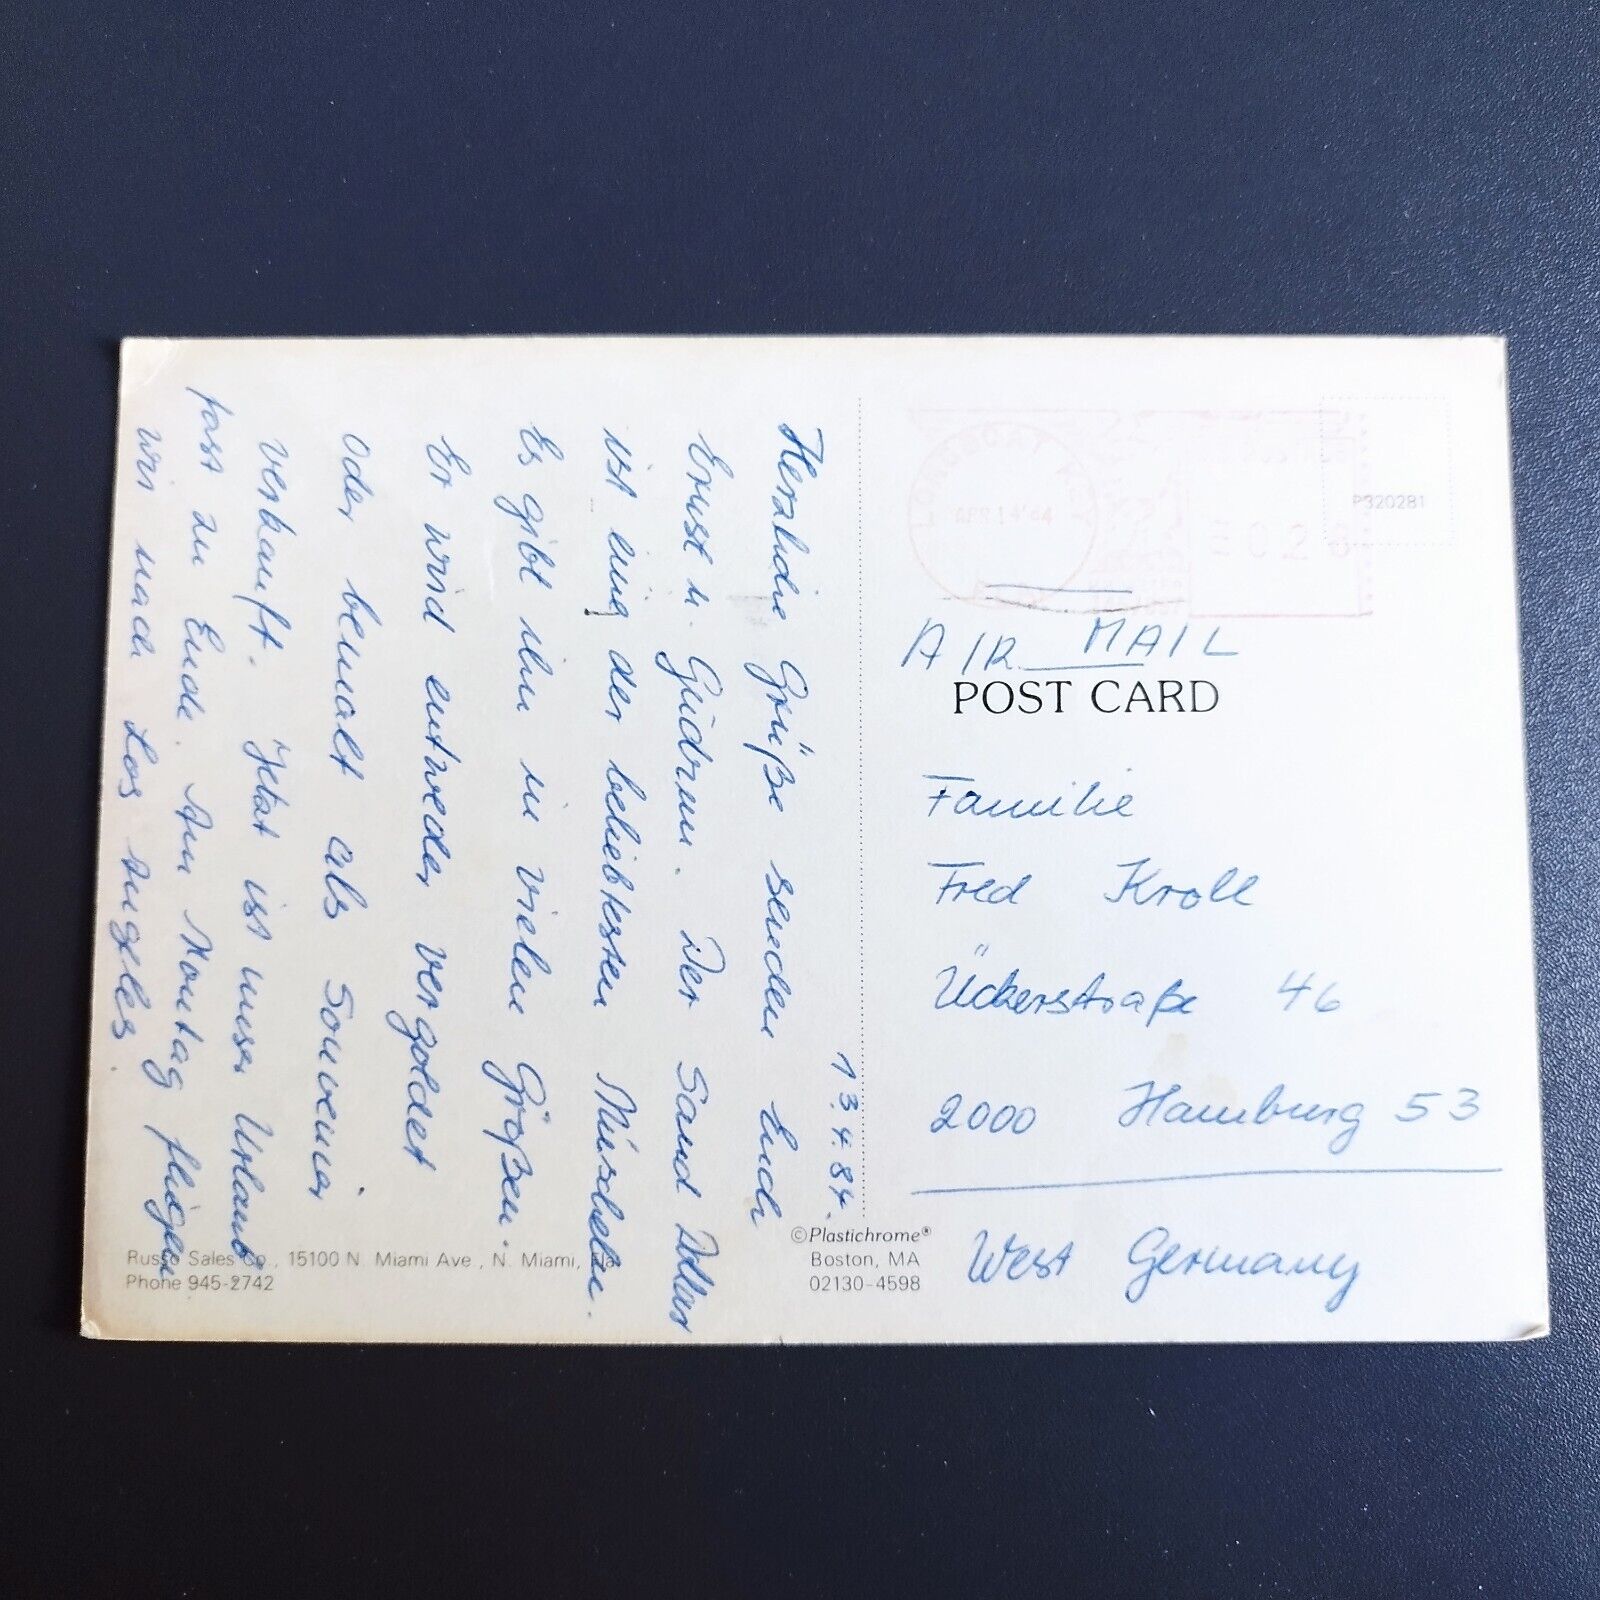 13.4.84.
Herzliche Grüße senden Euch
Ernst u. Gudrun. Der Sand Dollar
ist eine der beliebtesten Muscheln.
Es gibt ihn in vielen Größen.
Er wird entweder vergoldet
oder bemalt als Souvenir
verkauft. Jetzt ist unser Urlaub
fast zu Ende. Am Montag fliegen
wir nach Los Angeles.
Russo Sales Co., 15100 N. Miami Ave., N. Miami, Fla.
Phone 945-2742
©Plastichrome®
Boston, MA
02130-4598
LONGBOAT KEY
APR 14'84
028
P320281
AIR MAIL
POST CARD
Familie
Fred Kroll
Ückerstraße 46
2000 Hamburg 53
West Germany